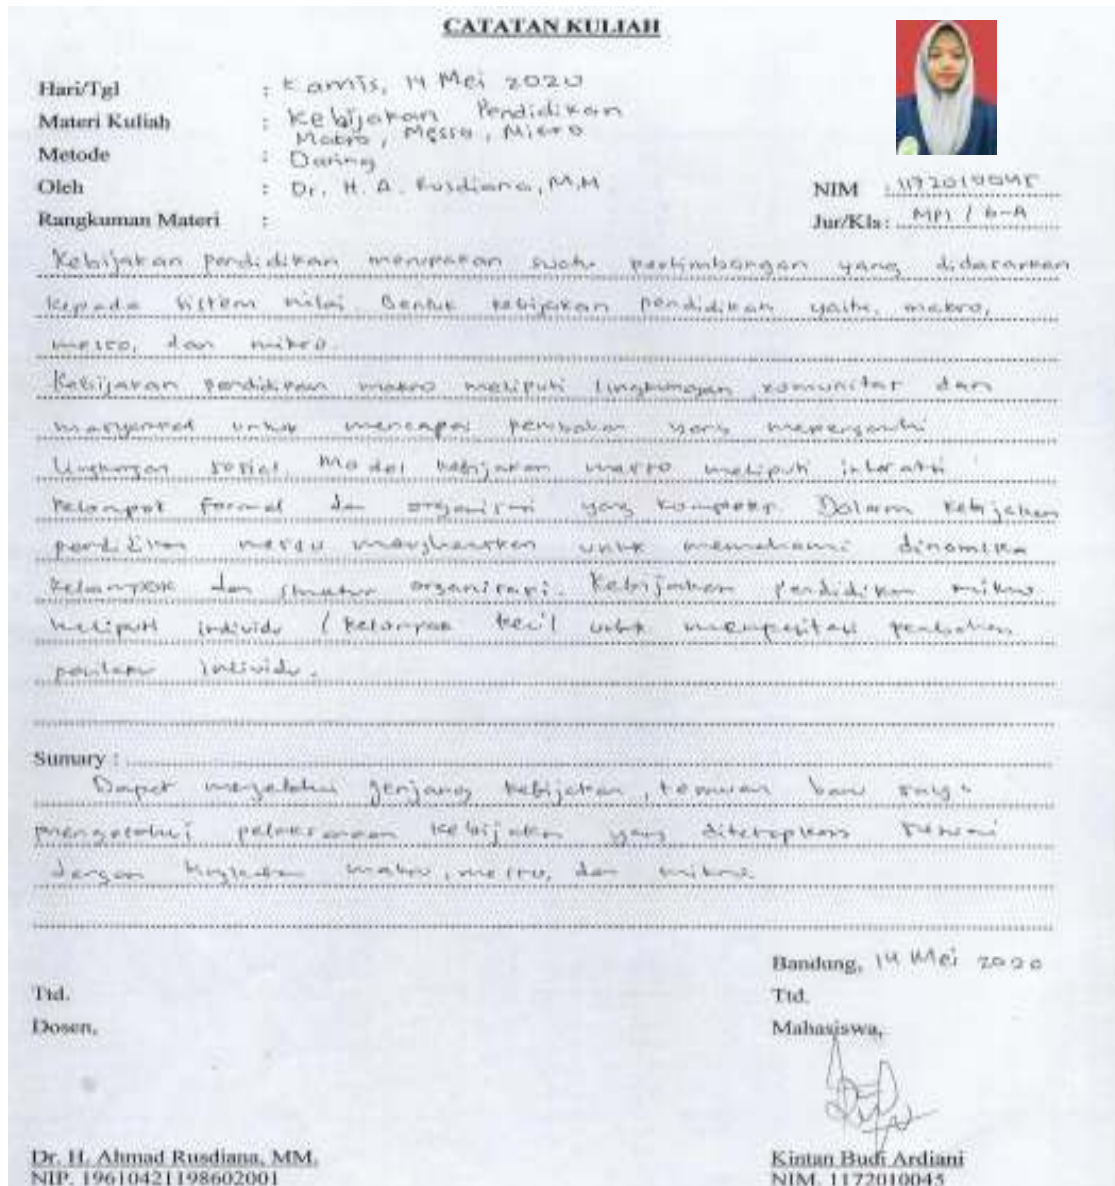 CATATAN KULIAH
Hari/Tgl : Kamis, 14 Mei 2020
Materi Kuliah : Kebijakan Pendidikan
Makro, Messo, Micro
Metode : Daring
Oleh : Dr. H. A. Rusdiana, M.M
NIM : 1172010045
Rangkuman Materi :
Jur/Kls : MPI / 6-A
Kebijakan pendidikan merupakan suatu pertimbangan yang didasarkan
kepada sistem nilai. Bentuk kebijakan pendidikan yaitu, makro,
messo, dan mikro.
Kebijakan pendidikan makro meliputi lingkungan, komunitas dan
masyarakat untuk mencapai perubahan yang
lingkungan sosial. Model kebijakan messo meliputi interaksi
kelompok formal dan organisasi yang kompleks. Dalam kebijakan
pendidikan messo untuk memahami dinamika
kelompok dan struktur organisasi. Kebijakan pendidikan mikro
meliputi individu / kelompok kecil untuk perubahan
perilaku individu.
Sumary :
Dapat mengetahui jenjang kebijakan, temuan baru saya
mengetahui pelaksanaan kebijakan yang ditetapkan sesuai
dengan tingkatan makro, messo, dan mikro.
Bandung, 14 Mei 2020
Ttd.
Ttd.
Dosen,
Mahasiswa,
Dr. H. Ahmad Rusdiana, MM.
Kintan Budi Ardiani
NIP. 19610421198602001
NIM. 1172010045